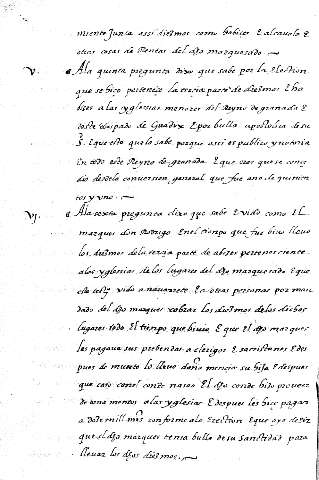 miento Junta assi diezmos como habizes E alcavala E
otras cosas de Rentas del dho marquesado.
V. A la quinta pregunta dixo que sabe por la Erection
que se hizo pertenece la tercia parte de diezmos E ha
bizes a las yglesias menores del Reyno de granada E
desde obispado de Guadix E por bulla apostolica de su
S. E que esto que lo sabe porque assi es publico y notorio
en todo este Reyno de granada E que cree que se conce
dio desde la conversion general que fue año de quinien
tos y uno.
VI. A la sexta pregunta dixo que sabe E vido como el
marques don Rodrigo En el tiempo que fue bivo llevo
los diezmos de la tercia parte de abizes pertenecientes
a las yglesias de los lugares del dho marquesado E que
este testigo vido a navarrete E a otras personas por man
dado del dho marques cobrar los diezmos de los dichos
lugares todo El tiempo que bivio E que El dho marques
les pagava sus prebendas a clerigos E sacristanes E des
pues de muerto lo llevo doña mencia su hija E despues
que caso con el conde nasao El dho conde hizo proveer
de una menos a las yglesias E despues les hizo pagar
a doze mill mrs conforme a la Erection E que oyo dezir
que el dho marques tenia bulla de su Santidad para
llevar los dhos diezmos.